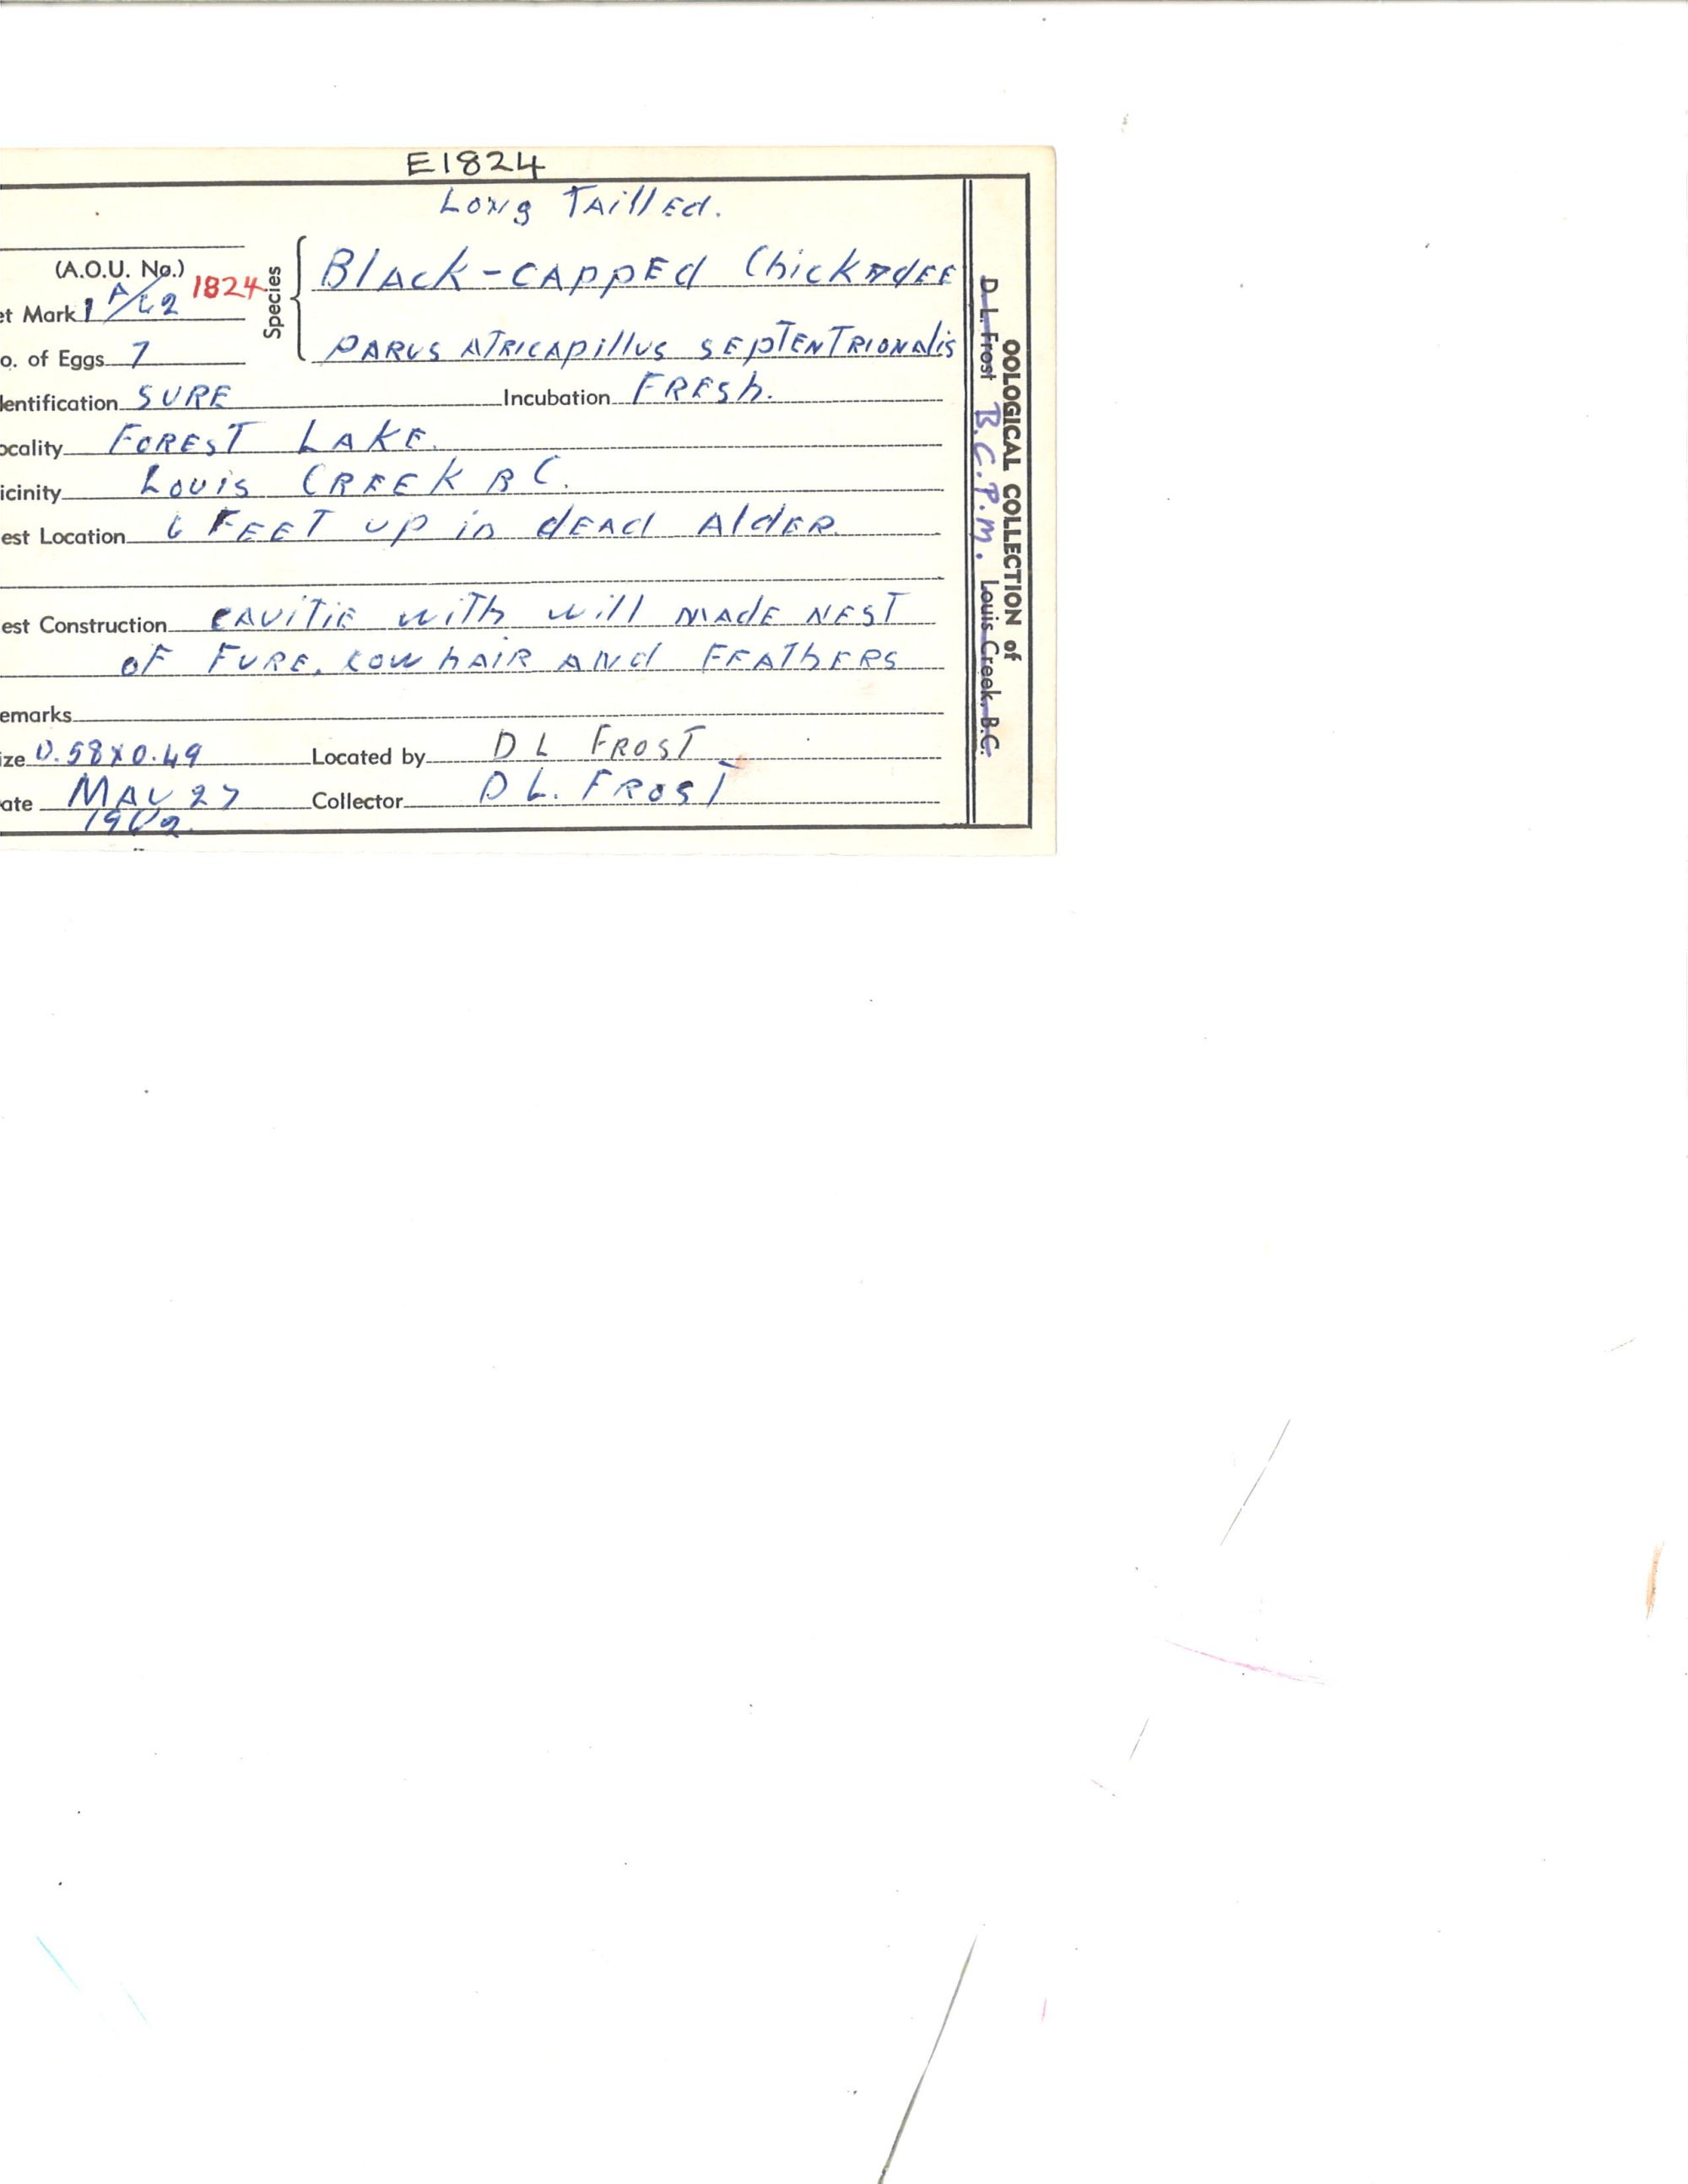 E1824
Long Tailled.
(A.O.U. No.)
1824
Species
Black-capped Chickadee
et Mark 1 A/62
Parus atricapillus septentrionalis
o. of Eggs 7
dentification SURE Incubation FRESh.
ocality FOREST LAKE.
icinity Louis CREEK B C.
est Location 6 FEET up in dEAd AldER.
est Construction CAVITIE with will MADE NEST
OF FURE, COW hAIR AND FEATHERS
emarks
ize 0.58 x 0.49 Located by D L FROST
ate MAY 27 Collector D L. FROST
1962.
OOLOGICAL COLLECTION of
D. L. Frost B.C.P.M. Louis Creek, B.C.